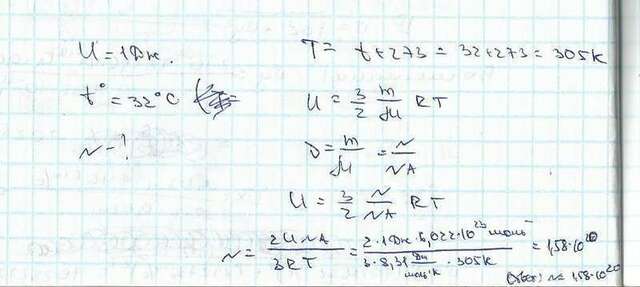 U = 1Дж.
t° = 32°C
N - ?
T = t + 273 = 32 + 273 = 305K
U = 3/2 m/M RT
ν = m/M = N/NA
U = 3/2 N/NA RT
N = 2UNA/3RT = 2·1Дж·6,022·10²³ моль⁻/3·8,31 Дж/моль·K · 305K = 1,58·10²⁰
Ответ: N = 1,58·10²⁰